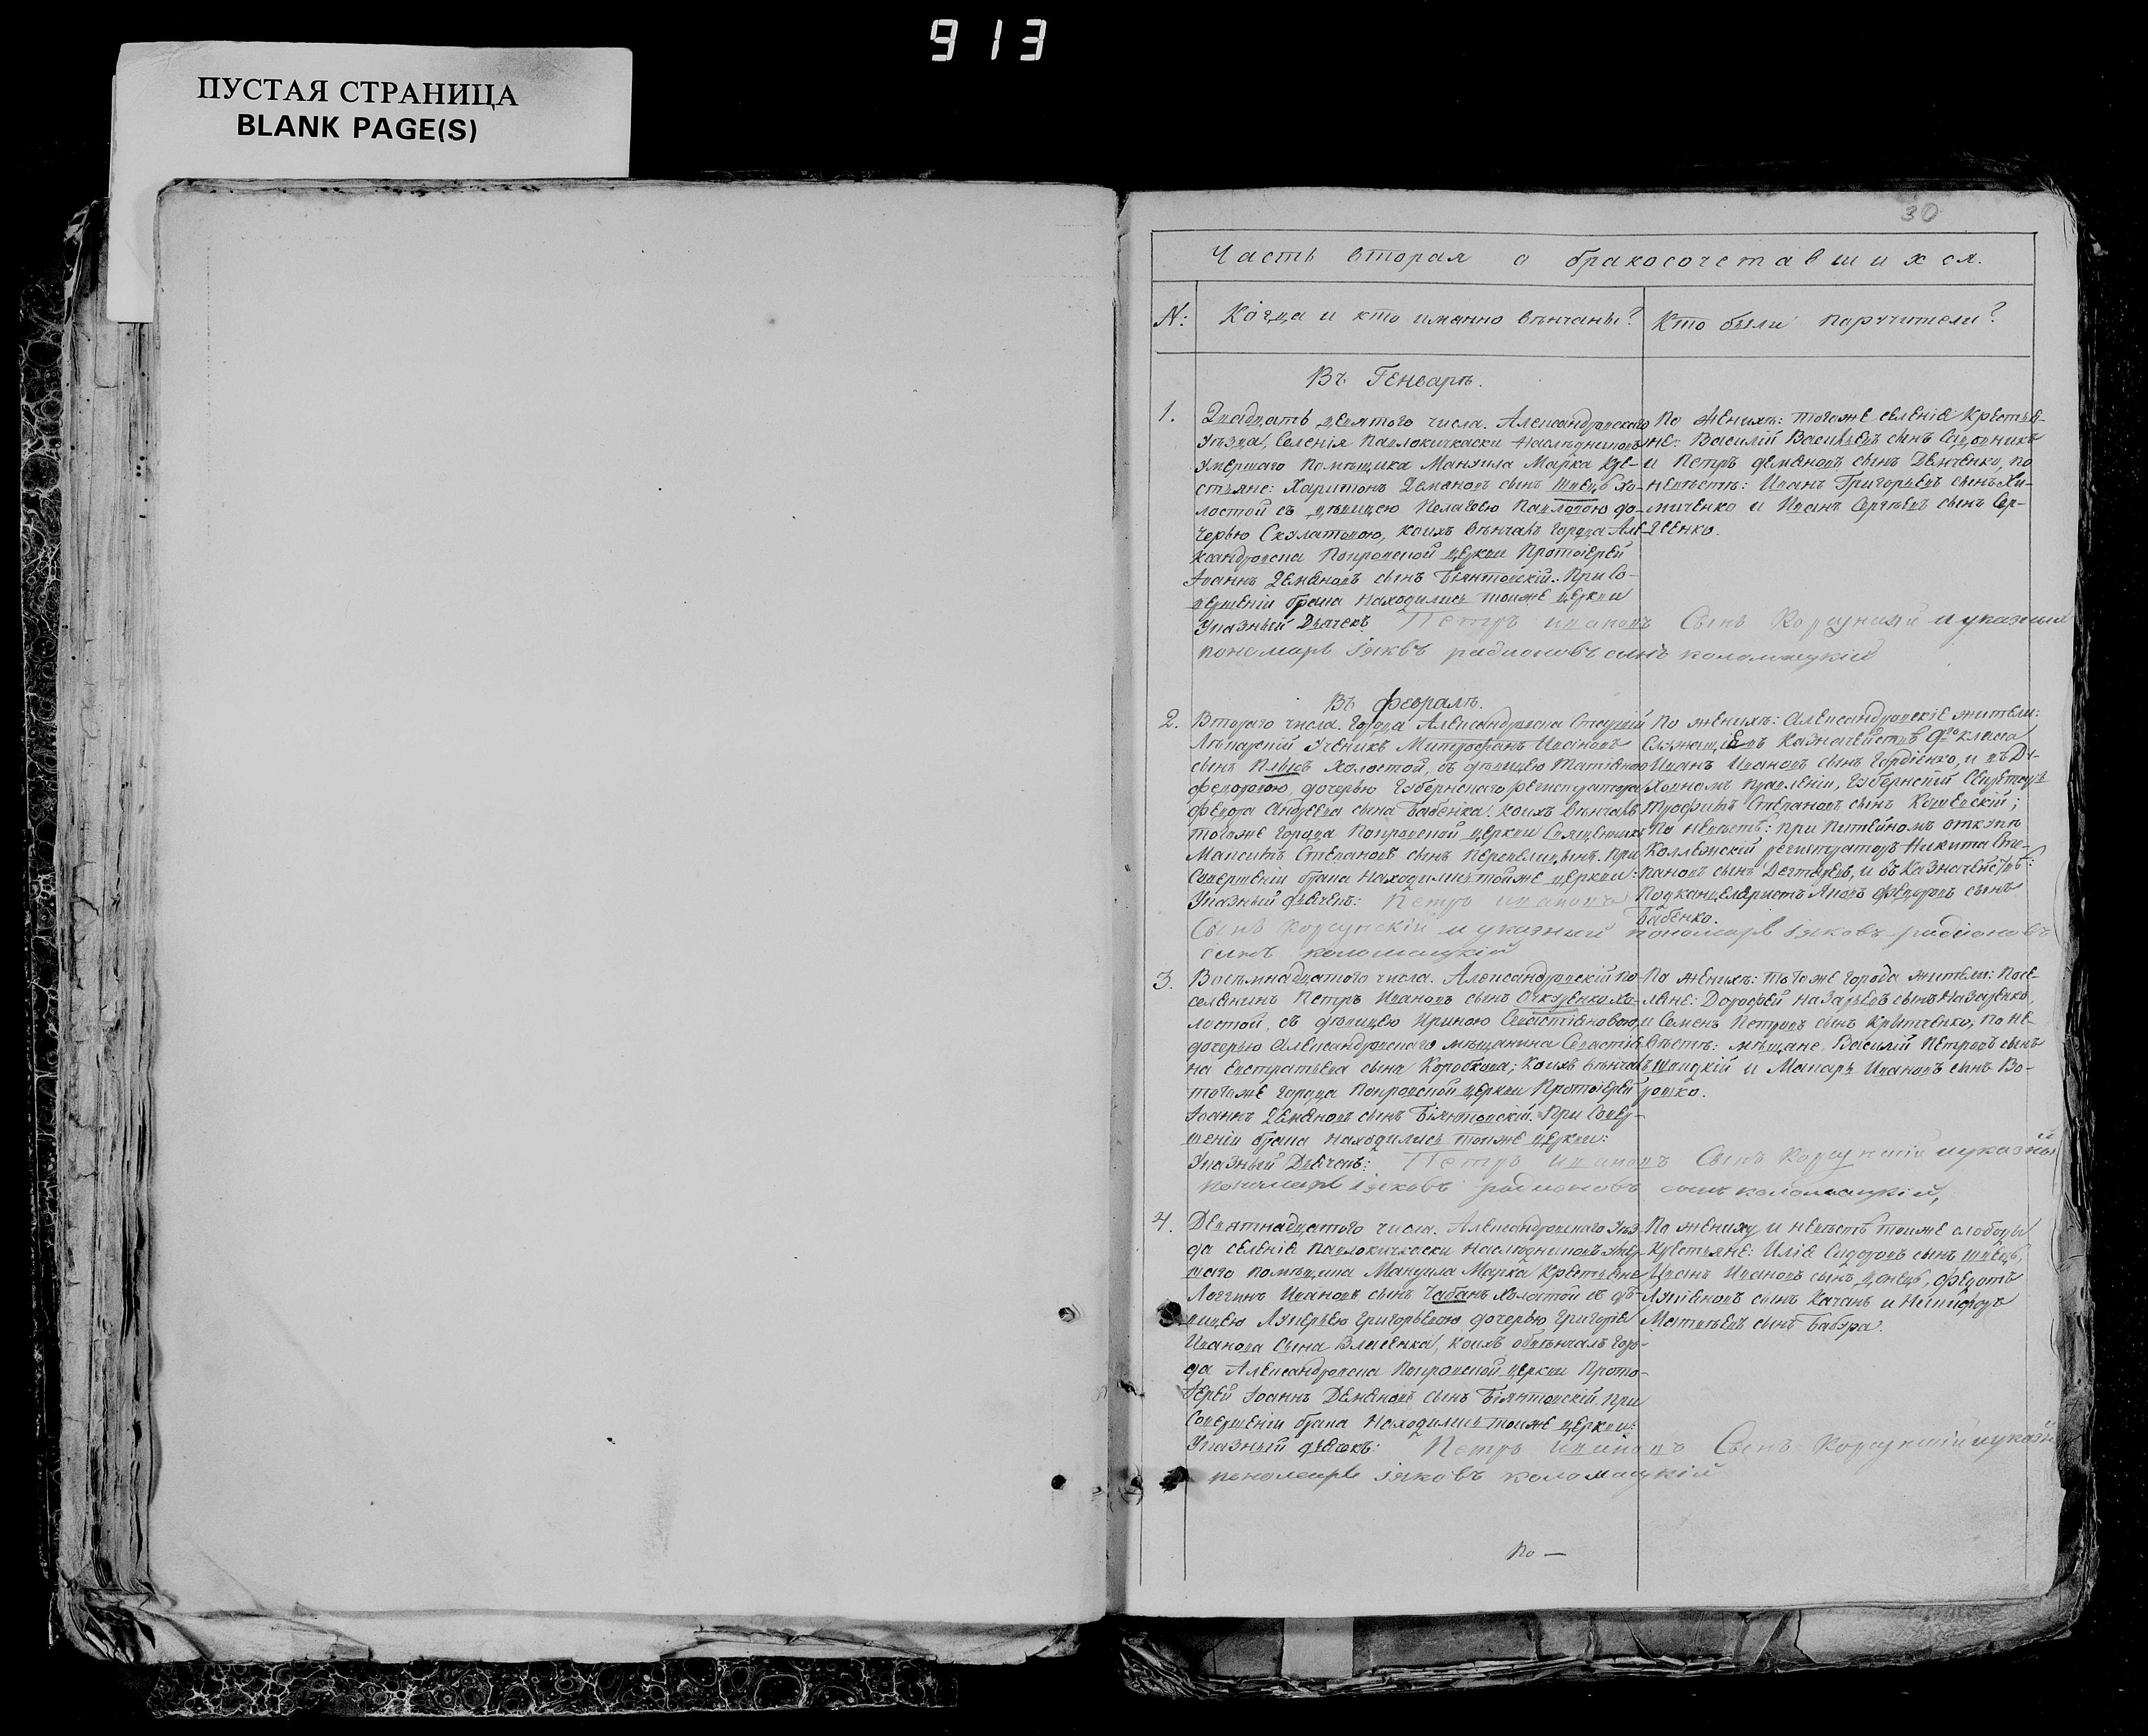 913
ПУСТАЯ СТРАНИЦА
BLANK PAGE(S)
30
Часть вторая о бракосочетавшихся.
N: Когда и кто именно вѣнчаны? Кто были поручители?
Въ Генварѣ.
1. Двадцать девятого числа. Александровскаго
Уѣзда, Селенія Павлокичкаски наслѣдниковъ
умершаго Помѣщика Мануила Марка кре-
стьяне: Харитонъ Деменовъ сынъ Швецъ Хо-
лостой съ дѣвицею Пелагеею Павловою до-
черью Скулатовою, коихъ вѣнчалъ города Але-
ксандровска Покровской церкви Протоіерей
Іоаннъ Деменовъ сынъ Бѣлянтовскій. При Со-
вершеніи брака находились тоиже церкви
Указный Дьячекъ Петръ Ивановъ Сынъ Корсунскій и указный
пономарь іяковъ радионовъ сынъ коломацкій
По женихѣ: тогоже селенія крестья-
не: Василій Васильевъ сынъ Садовникъ
и Петръ Деменовъ сынъ Демченко, по
невѣстѣ: Иванъ Григорьевъ сынъ Хи-
миченко и Иванъ Сергѣевъ сынъ Сер-
дѣенко.
Въ Февралѣ.
2. Втораго числа. Города Александровска
Лѣкарскій Ученикъ Митрофанъ Ивановъ
сынъ Холостой, съ дѣвицею Татіаною
Федоровою, дочерью Губернскаго регистратора
Федора Андреева сына Бабенка. коихъ вѣнчалъ
тогоже города Покровской церкви Священникъ
Максимъ Степановъ сынъ Перепелицынъ. При
Совершеніи брака находились тоиже церкви:
Указный дьячекъ: Петръ Ивановъ
Сынъ Корсунскій и указный пономарь іяковъ радионовъ
сынъ коломацкій
По женихѣ: Александровскіе жители:
Служащіе въ Казначействѣ 9го класса
Иванъ Ивановъ сынъ Гордіенко, и въ Ду-
ховномъ правленіи, Губернскій Секретарь
Трофимъ Степановъ сынъ;
По невѣстѣ: при Питейномъ откупѣ
Коллежскій регистраторъ Никита Сте-
пановъ сынъ Дегтяревъ, и въ Казначействѣ:
Подканцеляристъ Яковъ Федоровъ сынъ
Бабенко.
3. Восемнадцатого числа. Александровскій по-
селенинъ Петръ Ивановъ сынъ Очкуренко хо-
лостой, съ дѣвицею Ириною Севастіановою,
дочерью Александровскаго мѣщанина Севастіа-
на Евстратьева сына Коробкина; коихъ вѣнчалъ
тогоже города Покровской церкви Протоіерей
Іоаннъ Деменовъ сынъ Бѣлянтовскій. При Совер-
шеніи брака находились тоиже церкви:
Указный Дьячекъ: Петръ Ивановъ Сынъ Корсунскій и указный
пономарь іяковъ радионовъ сынъ коломацкій,
По женихѣ: тогоже города жители: посе-
ляне: Дорофей Назарьевъ сынъ Назаренко,
и Семенъ Петровъ сынъ Критченко; по не-
вѣстѣ: мѣщане, Василій Петровъ сынъ
и Макаръ Ивановъ сынъ Во-
рошко.
4. Девятнадцатого числа. Александровскаго Уѣз-
да селеніе Павлокичкаски наслѣдниковъ умер-
шаго помѣщика Мануила Марка Крестьяне
Логгинъ Ивановъ сынъ Чабанъ холостой съ дѣ-
вицею Лукерьею Григорьевою дочерью Григорія
Иванова Сына Власенка, коихъ обвѣнчалъ горо-
да Александровска Покровской церкви Прото-
іерей Іоаннъ Деменовъ сынъ Бѣлянтовскій. При
Совершеніи брака находились тоиже церкви:
Указный дьячокъ: Петръ Ивановъ Сынъ Корсунскій и указны
пономарь іяковъ коломацкій
По жениху и невѣстѣ тоиже слободы
Крестьяне: Илія Сидоровъ сынъ Швецъ,
Иванъ Ивановъ сынъ Донецъ, Федотъ
Лукіановъ сынъ Качанъ и Никифоръ
Матвѣевъ сынъ Бабура.
По —